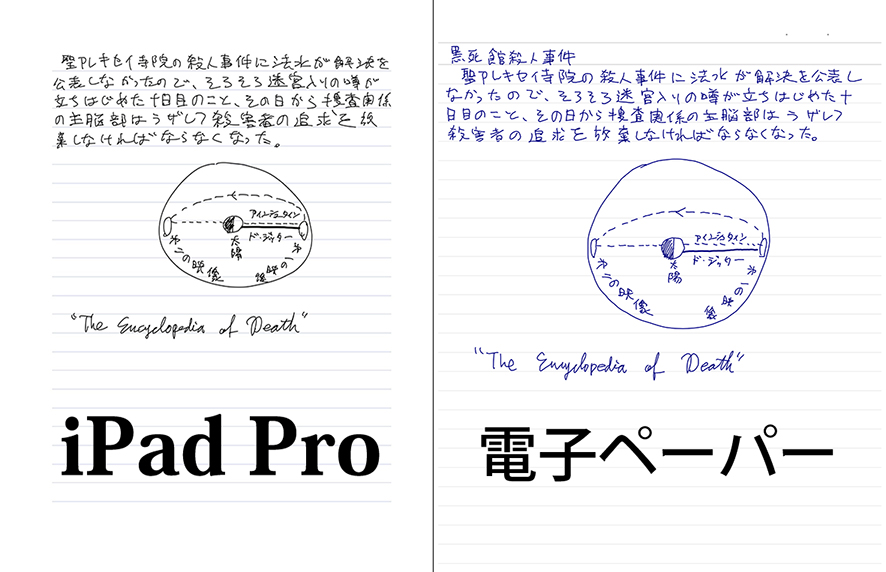 聖アレキセイ寺院の殺人事件に法水が解決を
公表しなかったので、そろそろ迷宮入りの噂が
立ちはじめた十日目のこと、その日から捜査関係
の主脳部はラザレフ殺害者の追求を放
棄しなければならなくなった。
アインシュタイン
ド・ジッター
太陽
第二の映像
第一の映像
"The Encyclopedia of Death"
iPad Pro
黒死館殺人事件
聖アレキセイ寺院の殺人事件に法水が解決を公表し
なかったので、そろそろ迷宮入りの噂が立ちはじめた十
日目のこと、その日から捜査関係の主脳部はラザレフ
殺害者の追求を放棄しなければならなくなった。
アインシュタイン
ド・ジッター
太陽
第二の映像
第一の映像
"The Encyclopedia of Death"
電子ペーパー